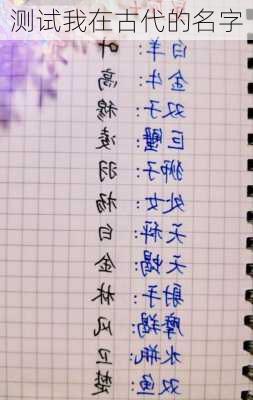 测试我在古代的名字
白羊：叶
金牛：高
双子：穆
巨蟹：凌
狮子：羽
处女：杨
天秤：白
天蝎：金
射手：林
摩羯：风
水瓶：卫
双鱼：楚